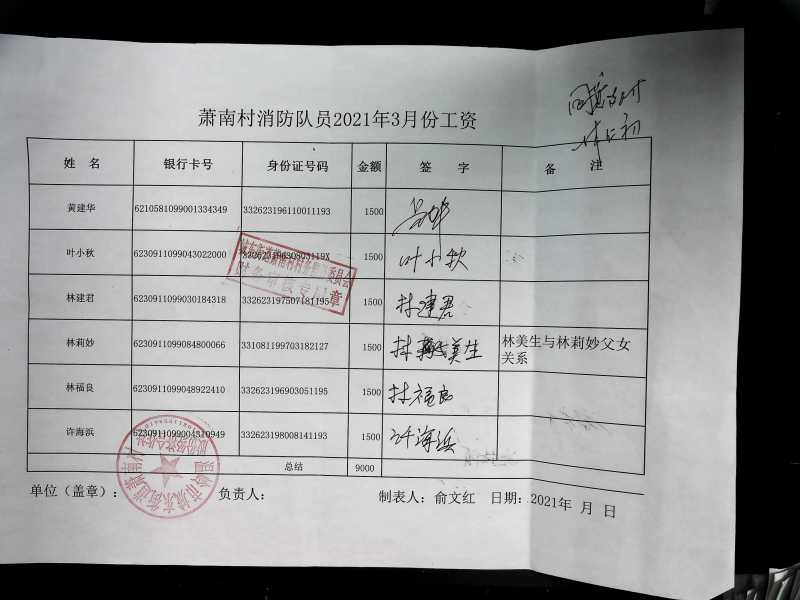 萧南村消防队员2021年3月份工资
姓 名 银行卡号 身份证号码 金额 签 字 备 注
黄建华 6210581099001334349 332623196110011193 1500
叶小秋 6230911099043022000 33262319630803119X 1500 叶小秋
林建君 6230911099030184318 332623197507181195 1500 林建君
林莉妙 6230911099084800066 331081199703182127 1500 林美生 林美生与林莉妙父女
关系
林福良 6230911099048922410 332623196903051195 1500 林福良
许海滨 6230911099004310949 332623198008141193 1500 许海滨
总结 9000
单位（盖章）： 负责人： 制表人：俞文红 日期：2021年 月 日